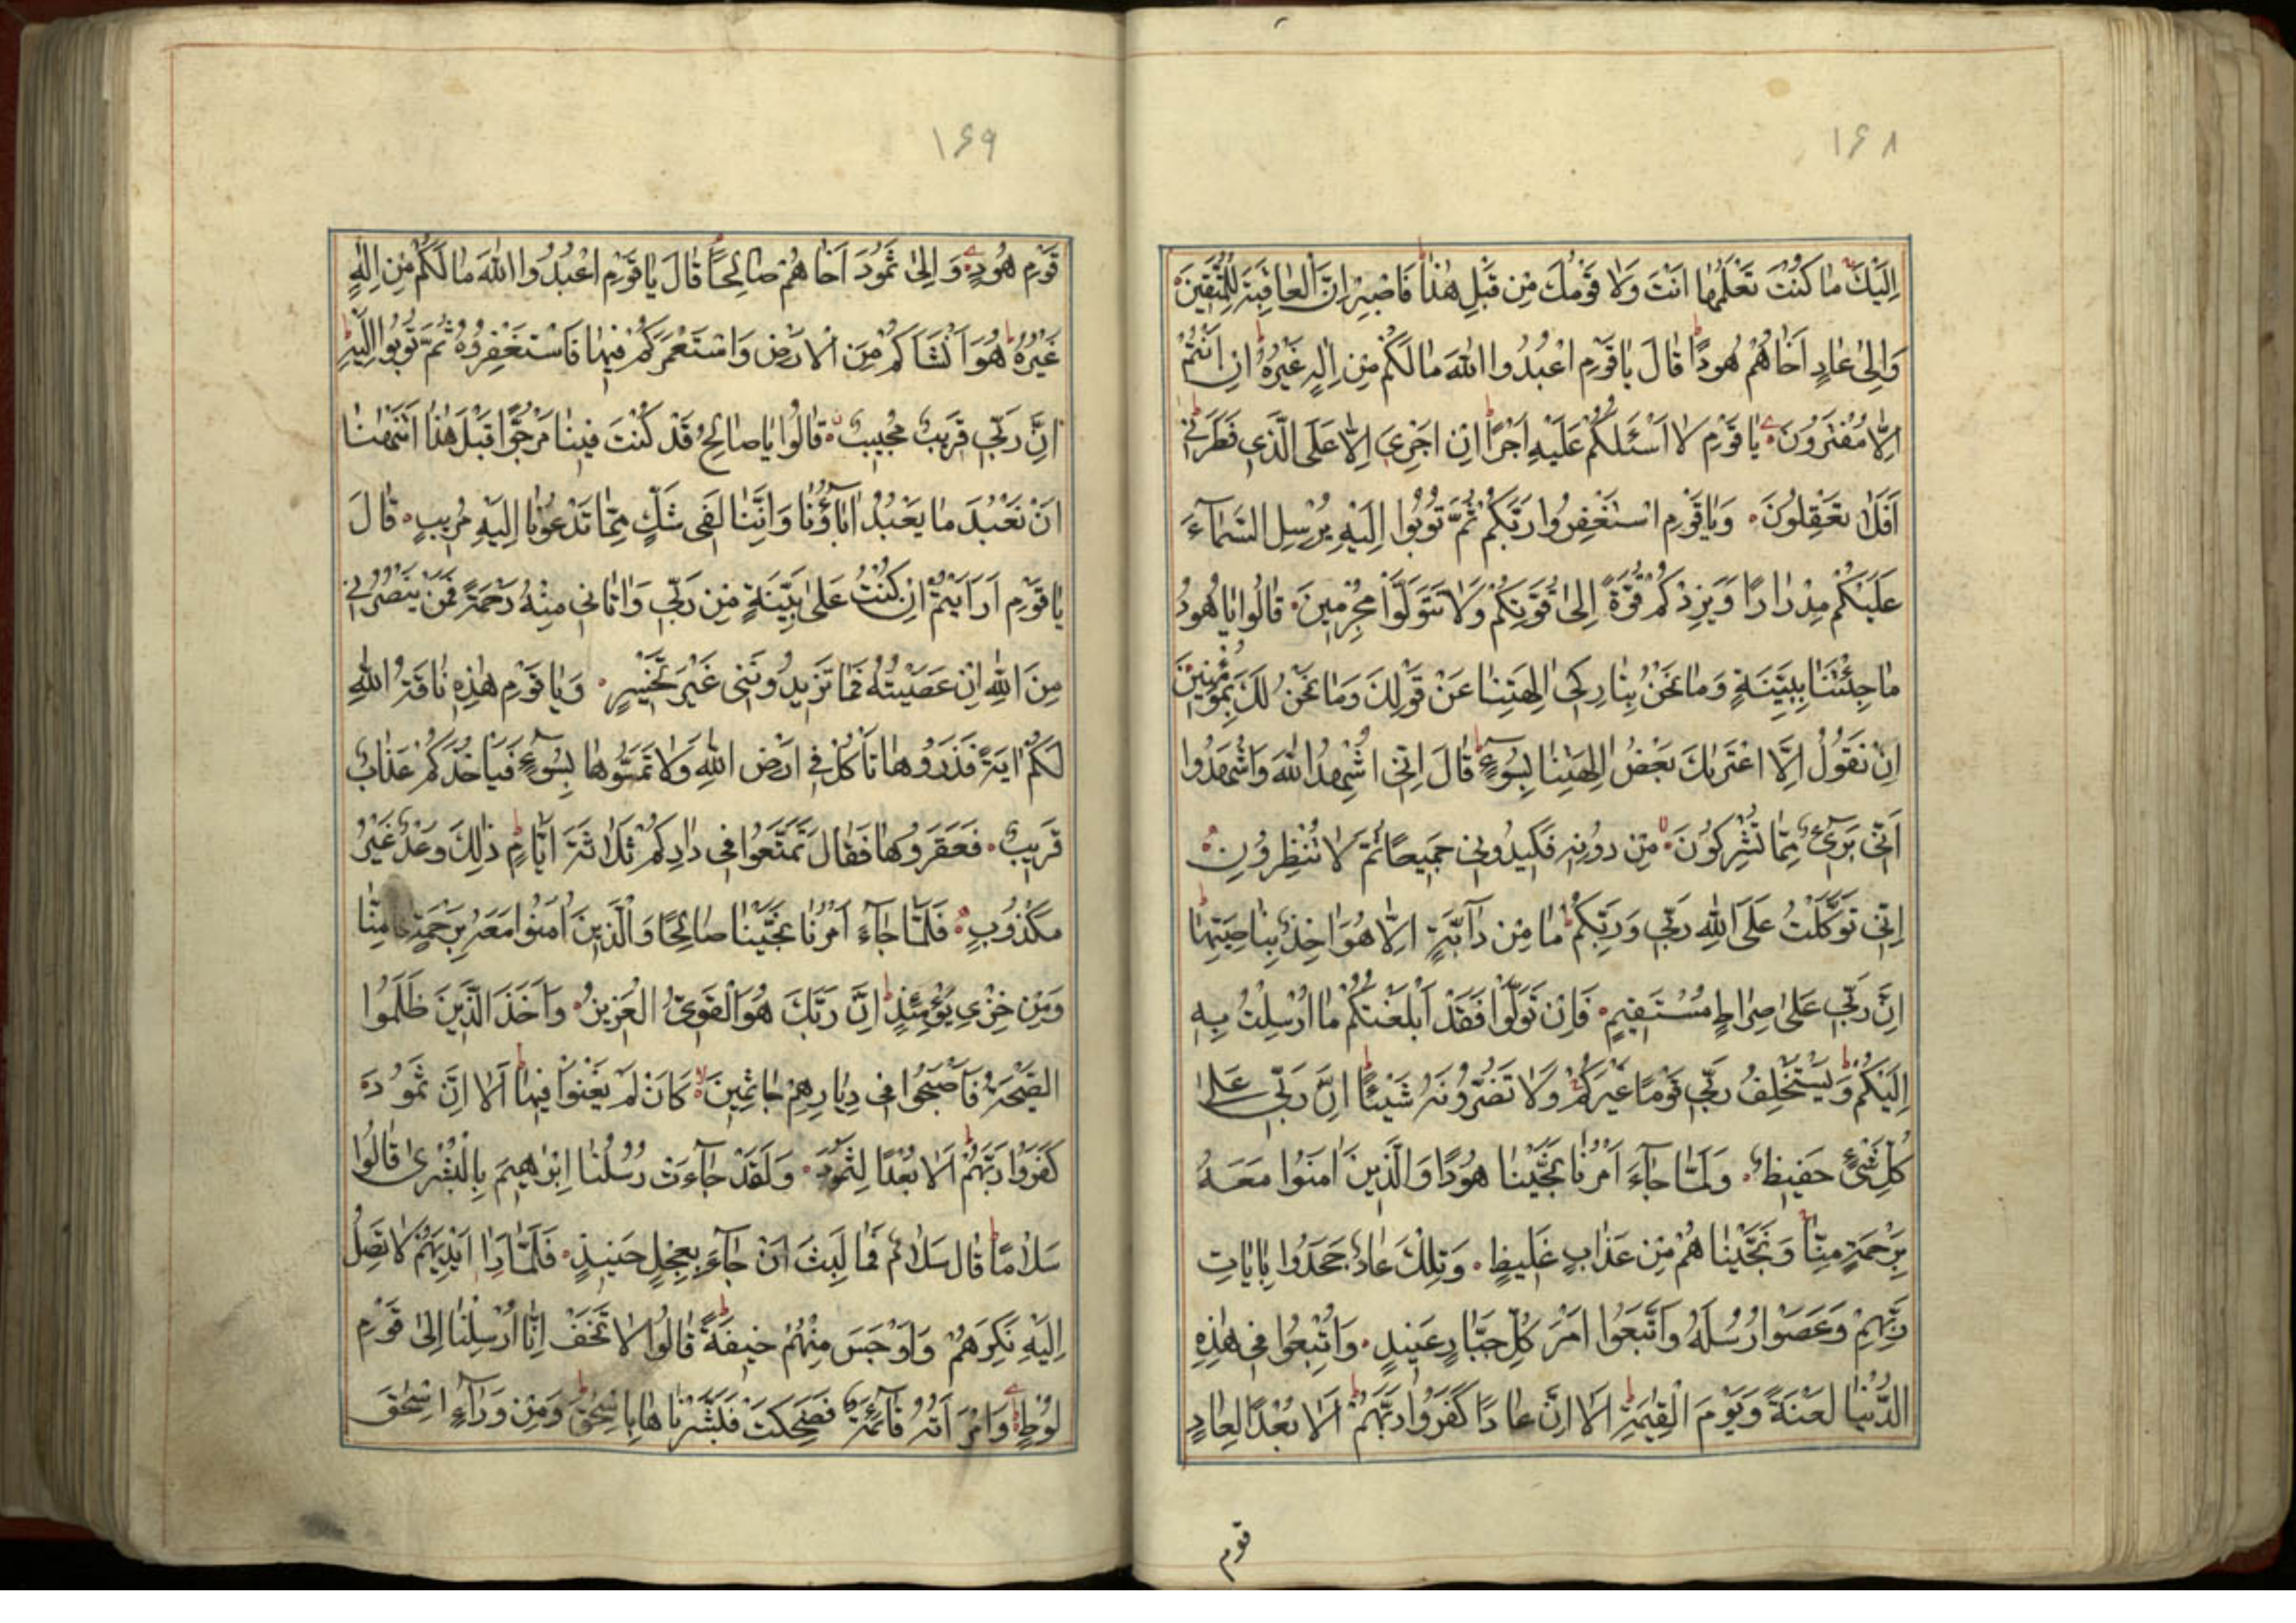 ۱۶۸
اِلَيْكَ مَا كُنْتَ تَعْلَمُهَا اَنْتَ وَلَا قَوْمُكَ مِنْ قَبْلِ هٰذَا فَاصْبِرْ اِنَّ الْعَاقِبَةَ لِلْمُتَّقِينَ
وَاِلٰى عَادٍ اَخَاهُمْ هُودًا قَالَ يَا قَوْمِ اعْبُدُوا اللّٰهَ مَا لَكُمْ مِنْ اِلٰهٍ غَيْرُهُ اِنْ اَنْتُمْ
اِلَّا مُفْتَرُونَ يَا قَوْمِ لَا اَسْئَلُكُمْ عَلَيْهِ اَجْرًا اِنْ اَجْرِيَ اِلَّا عَلَى الَّذِي فَطَرَنِي
اَفَلَا تَعْقِلُونَ وَيَا قَوْمِ اسْتَغْفِرُوا رَبَّكُمْ ثُمَّ تُوبُوا اِلَيْهِ يُرْسِلِ السَّمَآءَ
عَلَيْكُمْ مِدْرَارًا وَيَزِدْكُمْ قُوَّةً اِلٰى قُوَّتِكُمْ وَلَا تَتَوَلَّوْا مُجْرِمِينَ قَالُوا يَا هُودُ
مَا جِئْتَنَا بِبَيِّنَةٍ وَمَا نَحْنُ بِتَارِكِي اٰلِهَتِنَا عَنْ قَوْلِكَ وَمَا نَحْنُ لَكَ بِمُؤْمِنِينَ
اِنْ نَقُولُ اِلَّا اعْتَرٰىكَ بَعْضُ اٰلِهَتِنَا بِسُوٓءٍ قَالَ اِنِّي اُشْهِدُ اللّٰهَ وَاشْهَدُوا
اَنِّي بَرِيٓءٌ مِمَّا تُشْرِكُونَ مِنْ دُونِهِ فَكِيدُونِي جَمِيعًا ثُمَّ لَا تُنْظِرُونِ
اِنِّي تَوَكَّلْتُ عَلَى اللّٰهِ رَبِّي وَرَبِّكُمْ مَا مِنْ دَآبَّةٍ اِلَّا هُوَ اٰخِذٌ بِنَاصِيَتِهَا
اِنَّ رَبِّي عَلٰى صِرَاطٍ مُسْتَقِيمٍ فَاِنْ تَوَلَّوْا فَقَدْ اَبْلَغْتُكُمْ مَا اُرْسِلْتُ بِهِ
اِلَيْكُمْ وَيَسْتَخْلِفُ رَبِّي قَوْمًا غَيْرَكُمْ وَلَا تَضُرُّونَهُ شَيْئًا اِنَّ رَبِّي عَلٰى
كُلِّ شَيْءٍ حَفِيظٌ وَلَمَّا جَآءَ اَمْرُنَا نَجَّيْنَا هُودًا وَالَّذِينَ اٰمَنُوا مَعَهُ
بِرَحْمَةٍ مِنَّا وَنَجَّيْنَاهُمْ مِنْ عَذَابٍ غَلِيظٍ وَتِلْكَ عَادٌ جَحَدُوا بِاٰيَاتِ
رَبِّهِمْ وَعَصَوْا رُسُلَهُ وَاتَّبَعُوا اَمْرَ كُلِّ جَبَّارٍ عَنِيدٍ وَاُتْبِعُوا فِي هٰذِهِ
الدُّنْيَا لَعْنَةً وَيَوْمَ الْقِيٰمَةِ اَلَا اِنَّ عَادًا كَفَرُوا رَبَّهُمْ اَلَا بُعْدًا لِعَادٍ
قوم
۱۶۹
قَوْمِ هُودٍ وَاِلٰى ثَمُودَ اَخَاهُمْ صَالِحًا قَالَ يَا قَوْمِ اعْبُدُوا اللّٰهَ مَا لَكُمْ مِنْ اِلٰهٍ
غَيْرُهُ هُوَ اَنْشَاَكُمْ مِنَ الْاَرْضِ وَاسْتَعْمَرَكُمْ فِيهَا فَاسْتَغْفِرُوهُ ثُمَّ تُوبُوا اِلَيْهِ
اِنَّ رَبِّي قَرِيبٌ مُجِيبٌ قَالُوا يَا صَالِحُ قَدْ كُنْتَ فِينَا مَرْجُوًّا قَبْلَ هٰذَا اَتَنْهٰينَا
اَنْ نَعْبُدَ مَا يَعْبُدُ اٰبَآؤُنَا وَاِنَّنَا لَفِي شَكٍّ مِمَّا تَدْعُونَا اِلَيْهِ مُرِيبٍ قَالَ
يَا قَوْمِ اَرَاَيْتُمْ اِنْ كُنْتُ عَلٰى بَيِّنَةٍ مِنْ رَبِّي وَاٰتَانِي مِنْهُ رَحْمَةً فَمَنْ يَنْصُرُنِي
مِنَ اللّٰهِ اِنْ عَصَيْتُهُ فَمَا تَزِيدُونَنِي غَيْرَ تَخْسِيرٍ وَيَا قَوْمِ هٰذِهِ نَاقَةُ اللّٰهِ
لَكُمْ اٰيَةً فَذَرُوهَا تَاْكُلْ فِي اَرْضِ اللّٰهِ وَلَا تَمَسُّوهَا بِسُوٓءٍ فَيَاْخُذَكُمْ عَذَابٌ
قَرِيبٌ فَعَقَرُوهَا فَقَالَ تَمَتَّعُوا فِي دَارِكُمْ ثَلَاثَةَ اَيَّامٍ ذٰلِكَ وَعْدٌ غَيْرُ
مَكْذُوبٍ فَلَمَّا جَآءَ اَمْرُنَا نَجَّيْنَا صَالِحًا وَالَّذِينَ اٰمَنُوا مَعَهُ بِرَحْمَةٍ مِنَّا
وَمِنْ خِزْيِ يَوْمِئِذٍ اِنَّ رَبَّكَ هُوَ الْقَوِيُّ الْعَزِيزُ وَاَخَذَ الَّذِينَ ظَلَمُوا
الصَّيْحَةُ فَاَصْبَحُوا فِي دِيَارِهِمْ جَاثِمِينَ كَاَنْ لَمْ يَغْنَوْا فِيهَا اَلَا اِنَّ ثَمُودَ
كَفَرُوا رَبَّهُمْ اَلَا بُعْدًا لِثَمُودَ وَلَقَدْ جَآءَتْ رُسُلُنَا اِبْرٰهِيمَ بِالْبُشْرٰى قَالُوا
سَلَامًا قَالَ سَلَامٌ فَمَا لَبِثَ اَنْ جَآءَ بِعِجْلٍ حَنِيذٍ فَلَمَّا رَاٰ اَيْدِيَهُمْ لَا تَصِلُ
اِلَيْهِ نَكِرَهُمْ وَاَوْجَسَ مِنْهُمْ خِيفَةً قَالُوا لَا تَخَفْ اِنَّا اُرْسِلْنَا اِلٰى قَوْمِ
لُوطٍ وَامْرَاَتُهُ قَآئِمَةٌ فَضَحِكَتْ فَبَشَّرْنَاهَا بِاِسْحٰقَ وَمِنْ وَرَآءِ اِسْحٰقَ